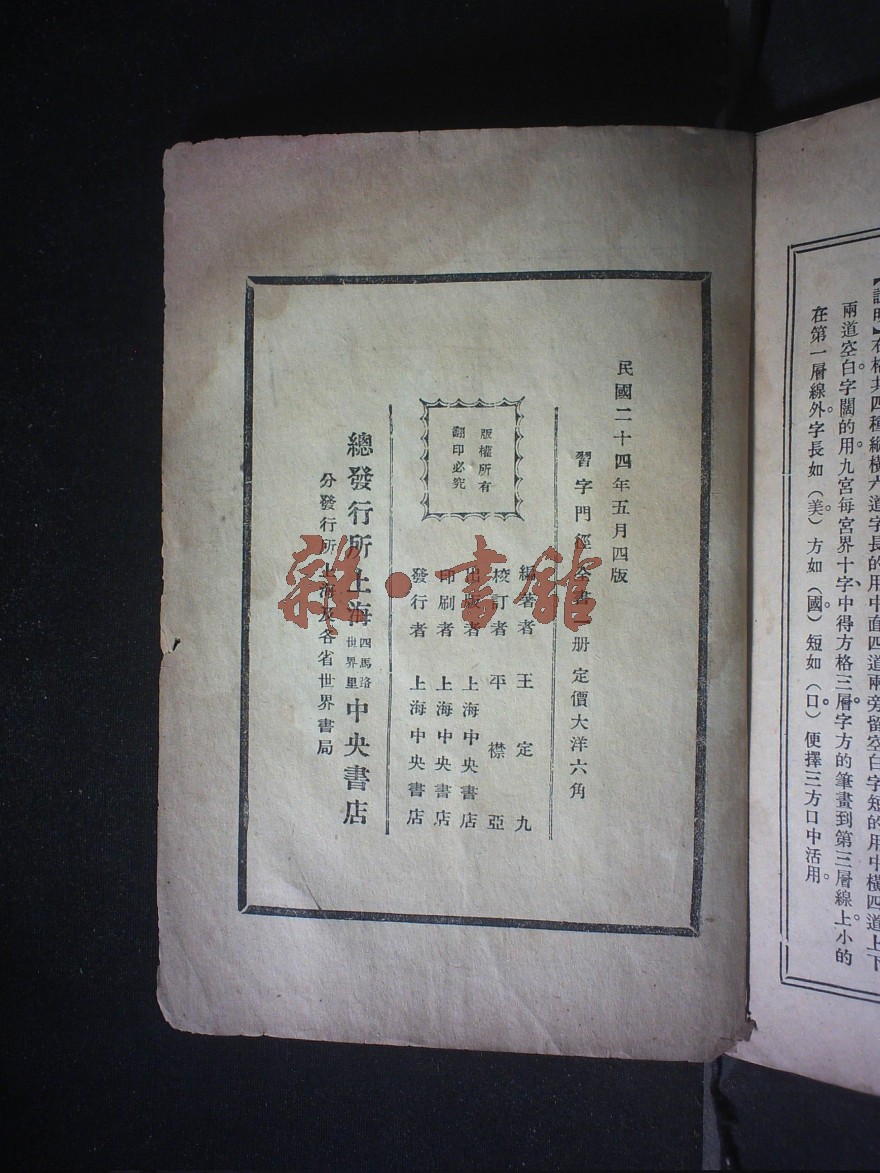 【說明】右格共四種縱橫六道字長的用中面四道兩旁留空白字短的用中橫四道上下
兩道空白字闊的用九宮每宮界十字中得方格三層字方的筆畫到第三層線上小的
在第一層線外字長如(美)方如(國)短如(口)便擇三方口中活用。
民國二十四年五月四版
習字門徑全書一册 定價大洋六角
版權所有
翻印必究
編著者 王定九
校訂者 平襟亞
出版者 上海中央書店
印刷者 上海中央書店
發行者 上海中央書店
總發行所上海四馬路世界里中央書店
分發行所上海及各省世界書局
雜·書館